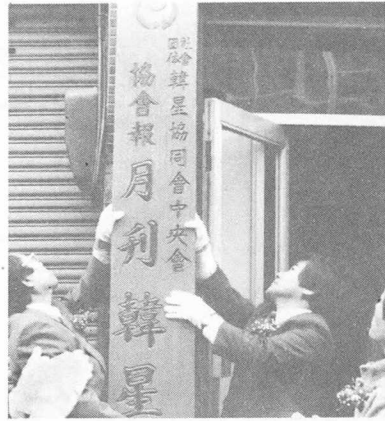 社會
団体
韓星協同會中央會
協會報 月刊韓星